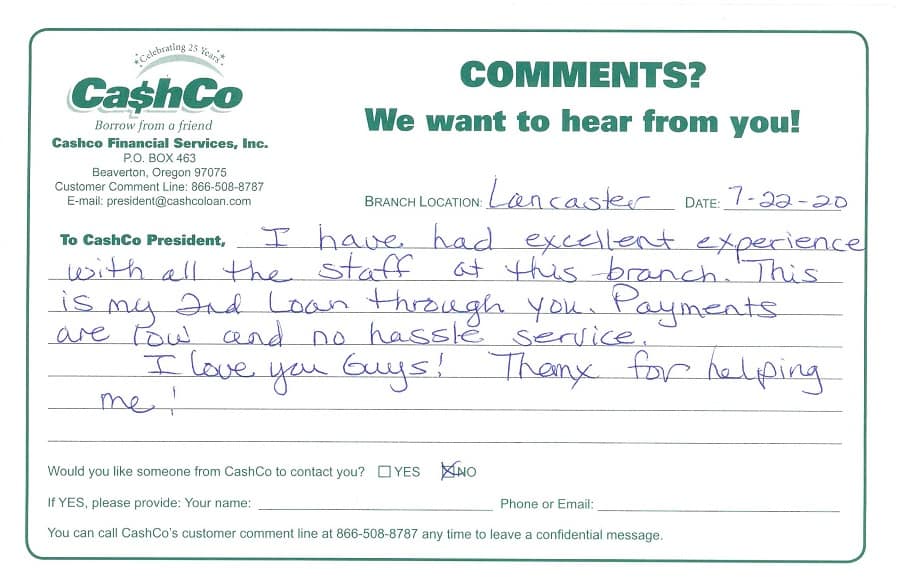 Celebrating 25 Years
Ca$hCo
Borrow from a friend
Cashco Financial Services, Inc.
P.O. BOX 463
Beaverton, Oregon 97075
Customer Comment Line: 866-508-8787
E-mail: president@cashcoloan.com
COMMENTS?
We want to hear from you!
BRANCH LOCATION: Lancaster DATE: 7-22-20
To CashCo President, I have had excellent experience
with all the staff at this branch. This
is my 2nd Loan through you. Payments
are low and no hassle service.
I love you Guys! Thanx for helping
me!
Would you like someone from CashCo to contact you? ☐ YES ☒ NO
If YES, please provide: Your name: Phone or Email:
You can call CashCo's customer comment line at 866-508-8787 any time to leave a confidential message.